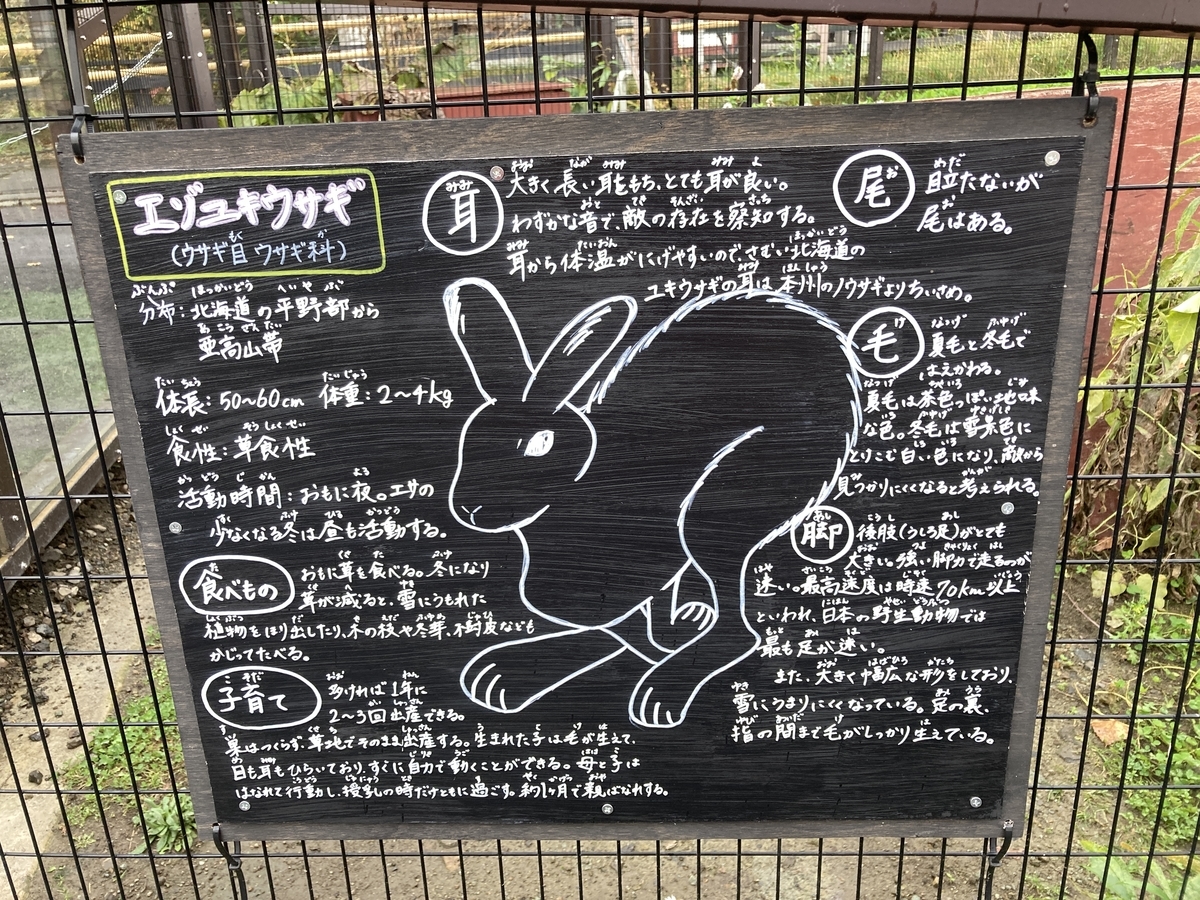 エゾユキウサギ
(ウサギ目 ウサギ科)
分布：北海道の平野部から
亜高山帯
体長：50〜60cm 体重：2〜4kg
食性：草食性
活動時間：おもに夜。エサの
少なくなる冬は昼も活動する。
食べもの
おもに草を食べる。冬になり
草が減ると、雪にうもれた
植物をほり出したり、木の枝や冬芽、木の皮なども
かじってたべる。
子育て
多ければ1年に
2〜3回出産できる。
巣はつくらず、草地でそのまま出産する。生まれた子は毛が生えて、
目も耳もひらいており、すぐに自力で動くことができる。母と子は
はなれて行動し、授乳の時だけともに過ごす。約1ヶ月で親ばなれする。
耳
大きく長い耳をもち、とても耳が良い。
わずかな音で、敵の存在を察知する。
耳から体温がにげやすいので、さむい北海道の
ユキウサギの耳は本州のノウサギよりちいさめ。
尾
目立たないが
尾はある。
毛
夏毛と冬毛で
はえかわる。
夏毛は茶色っぽい地味
な色。冬毛は雪景色に
とりこむ白い色になり、敵から
見つかりにくくなると考えられる。
脚
後肢(うしろ足)がとても
大きい。強い脚力で走るのが
速い。最高速度は時速70km以上
といわれ、日本の野生動物では
最も足が速い。
また、大きく幅広な形をしており、
雪にうまりにくくなっている。足の裏、
指の間まで毛がしっかり生えている。